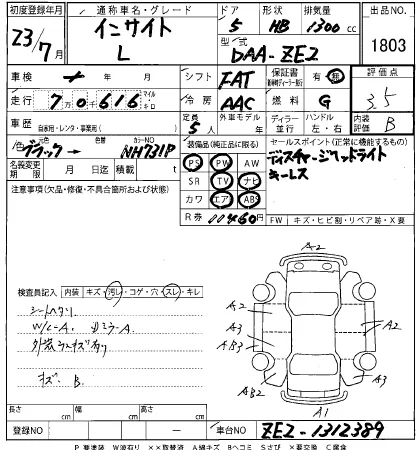 初度登録年月 通称車名・グレード ドア 形状 排気量 出品NO.
23/7月 インサイト L 5 HB 1300cc 1803
型式 DAA-ZE2
車検 年 月 シフト FAT 保証書 有 無 評価点
走行 7万0616 マイル キロ 冷房 AAC 燃料 G 3.5
車歴 自家用・レンタ・事業用( ) 定員 5人 外車モデル 年 ディーラー 並行 ハンドル 左・右 内装評価 B
色 元色 ブラック→ 色替 カラーNO NH731P
装備品(純正品に限る) セールスポイント(正常に機能するもの)
名義変更期限 月 日迄 積載 t
PS PW AW ディスチャージヘッドライト
SR TV ナビ キーレス
注意事項(欠品・修復・不具合箇所および状態)
カワ エア ABS
R券 11460円 FW キズ・ヒビ割・リペア跡・X要
検査員記入 内装 キズ・汚レ・コゲ・穴・スレ・キレ
シートヘタリ
W/C-A.
外装うすキズ有り
キズ. B.
A2
A2
A3
A2
AB3
AB2
A3
A1
長さ cm 幅 cm 高さ cm
登録NO － 車台NO ZE2-1312389
P要塗装 W波有り ××取替済 A線キズ Bヘコミ Sさび ×要交換 C腐食